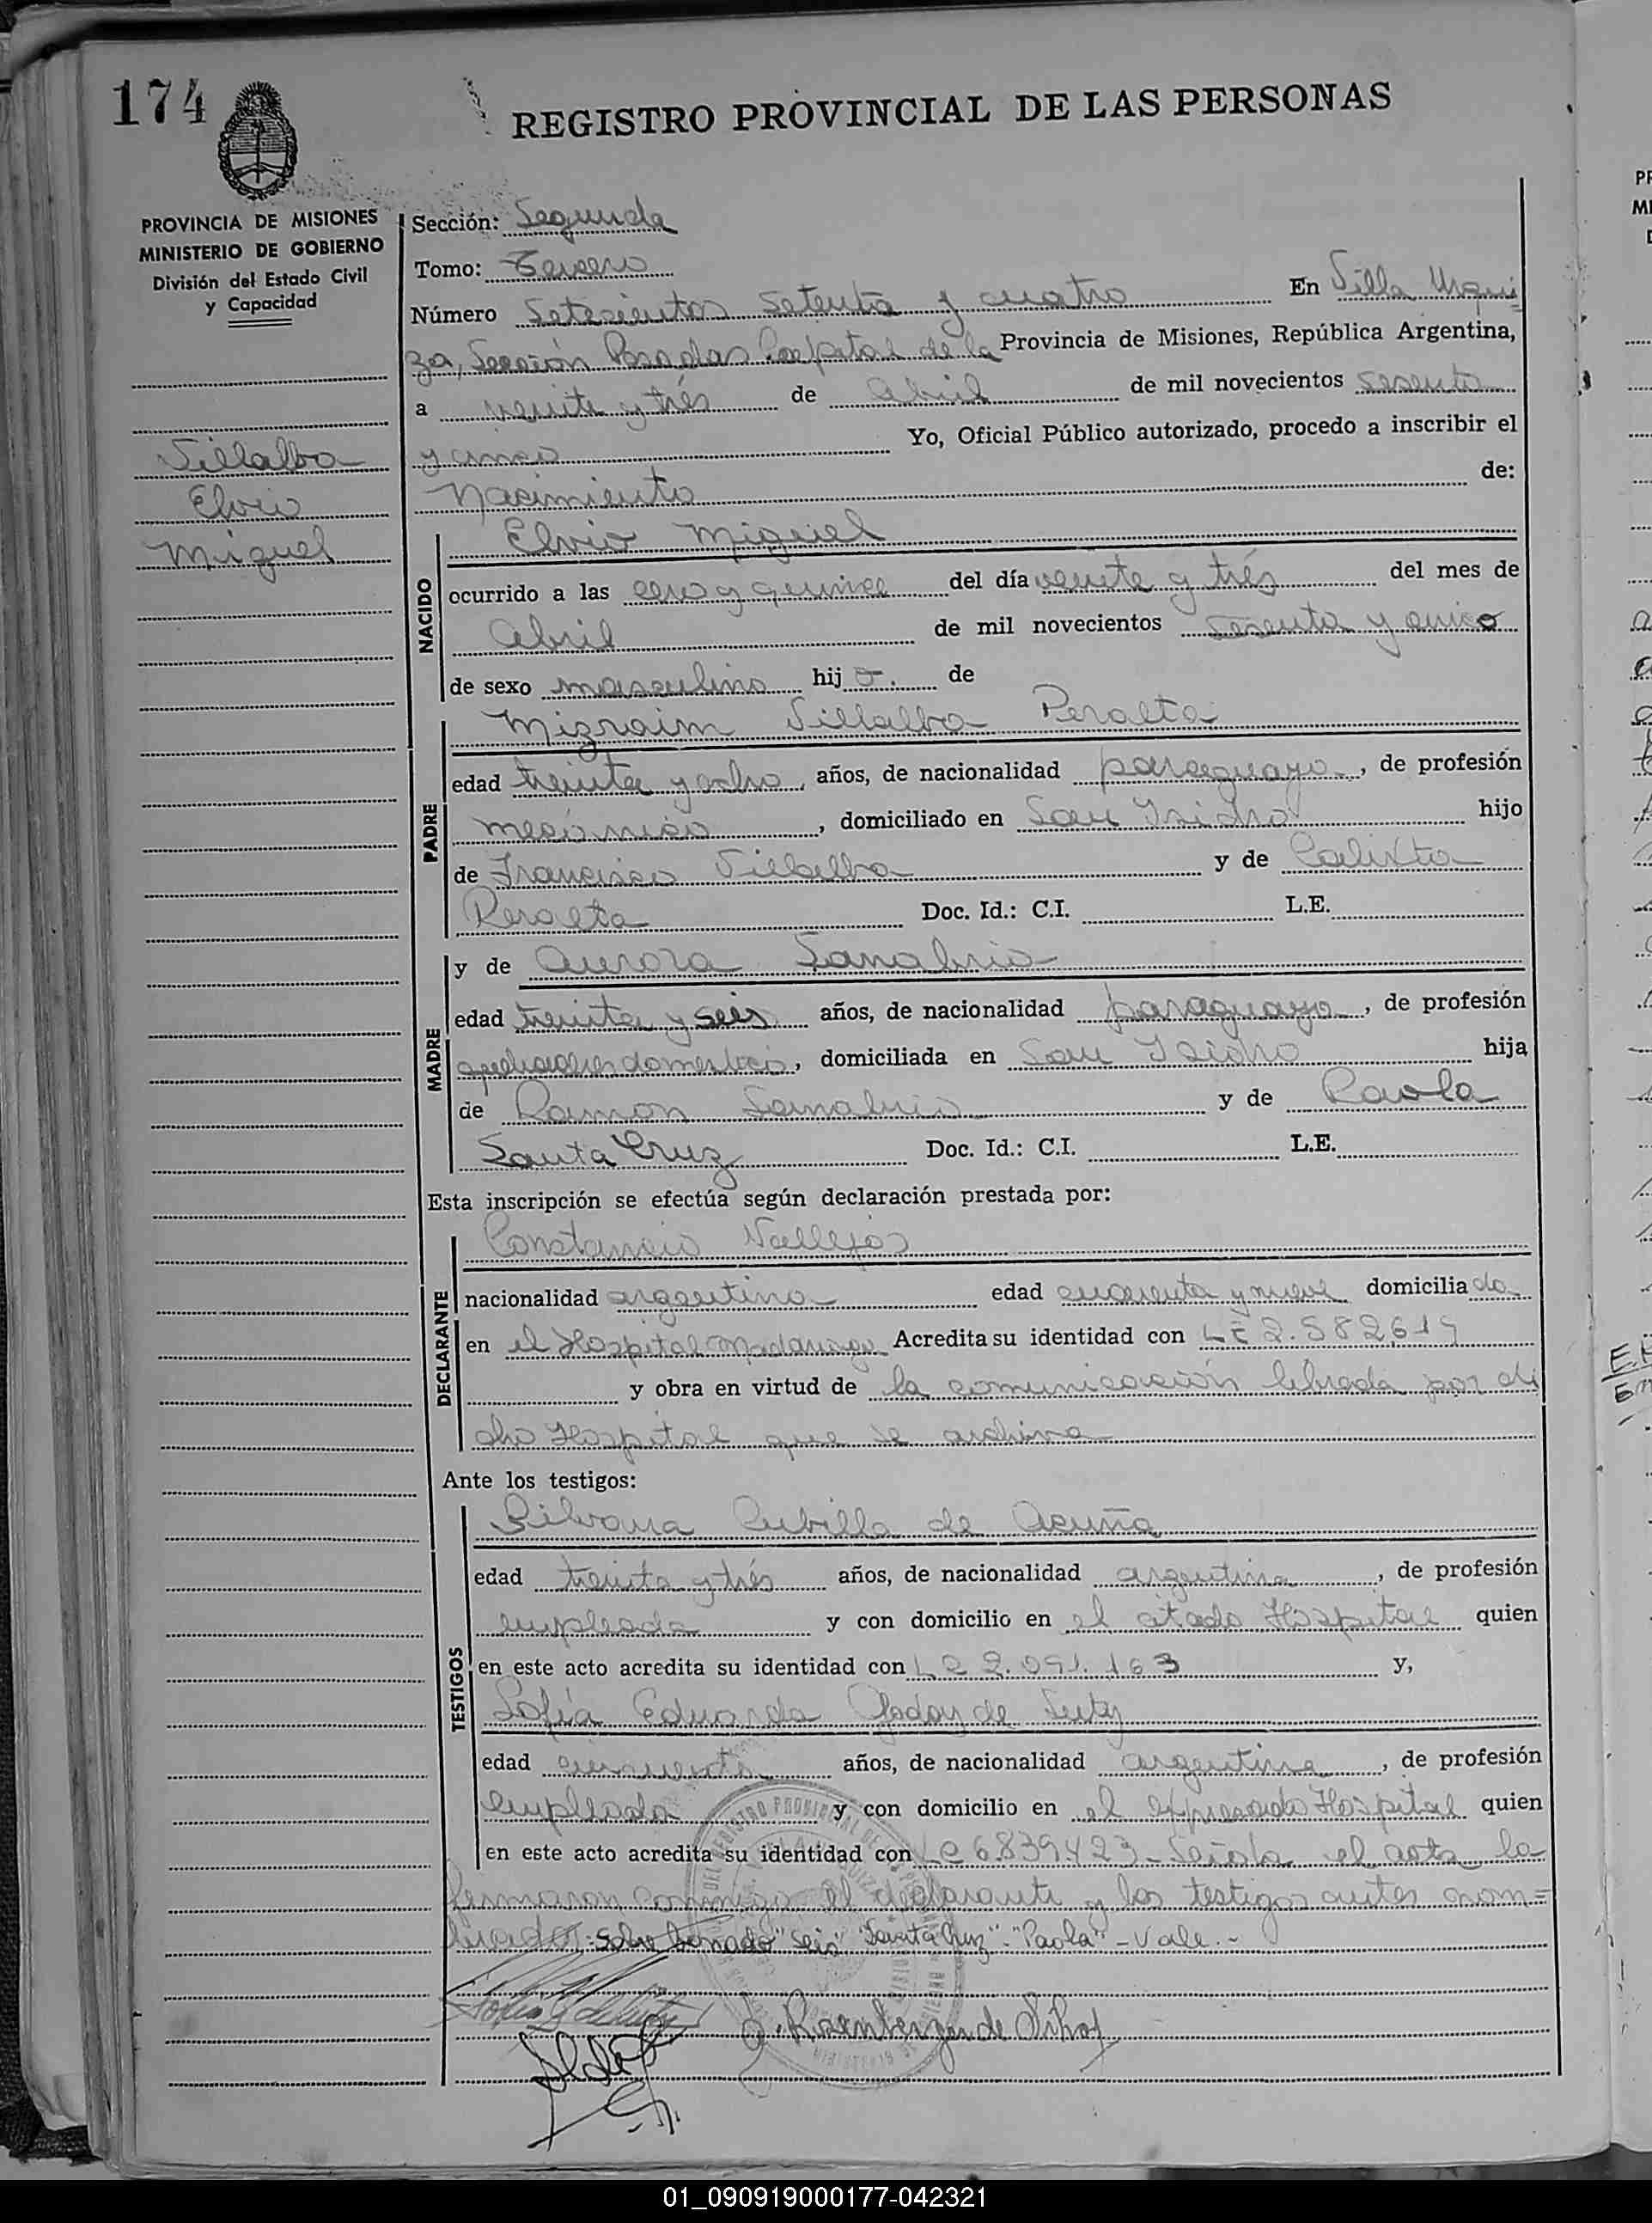 174
REGISTRO PROVINCIAL DE LAS PERSONAS
PROVINCIA DE MISIONES
MINISTERIO DE GOBIERNO
División del Estado Civil
y Capacidad
Villalba
Elvio
Miguel
Sección: Segunda
Tomo: Tercero
Número Setecientos setenta y cuatro En Villa Urqui
za, Sección Posadas Capital de la Provincia de Misiones, República Argentina,
a veinte y trés de abril de mil novecientos sesenta
y cinco Yo, Oficial Público autorizado, procedo a inscribir el
Nacimiento de:
NACIDO
Elvio Miguel
ocurrido a las cero y quince del día veinte y trés del mes de
abril de mil novecientos sesenta y cinco
de sexo masculino hij o. de
PADRE
Mizraim Villalba Peralta
edad treinta y ocho, años, de nacionalidad paraguayo, de profesión
mecánico, domiciliado en San Isidro hijo
de Francisco Villalba y de Calixta
Peralta Doc. Id.: C.I. L.E.
MADRE
y de Aurora Sanabria
edad treinta y seis años, de nacionalidad paraguaya, de profesión
domésticos, domiciliada en San Isidro hija
de Ramón Sanabria y de Paola
Santa Cruz Doc. Id.: C.I. L.E.
Esta inscripción se efectúa según declaración prestada por:
DECLARANTE
Constancio Vallejos
nacionalidad argentino edad cuarenta y nueve domicilia do
en el Hospital Madariaga Acredita su identidad con LE 2.582619
y obra en virtud de la comunicación librada por di
cho Hospital que se archiva
Ante los testigos:
TESTIGOS
Silvana Cubilla de Acuña
edad treinta y trés años, de nacionalidad argentina, de profesión
empleada y con domicilio en el citado Hospital quien
en este acto acredita su identidad con LC 2.091.163 y,
Sofía Eduarda Godoy de
edad cincuenta años, de nacionalidad argentina, de profesión
empleada y con domicilio en el expresado Hospital quien
en este acto acredita su identidad con LC 6.839423 - Leída el acta la
firmaron conmigo el declarante y los testigos antes nom=
brados: sobre borrado "seis" "Santa Cruz" - "Paola" - Vale. -
01_090919000177-042321